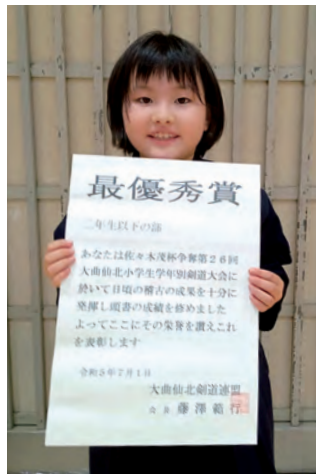 最優秀賞
二年生以下の部
あなたは佐々木茂杯争奪第26回
大曲仙北小学生学年別剣道大会に
於いて日頃の稽古の成果を十分に
発揮し頭書の成績を修めました
よってここにその栄誉を讃えこれ
を表彰します
令和5年7月1日
大曲仙北剣道連盟
会長 藤澤範行